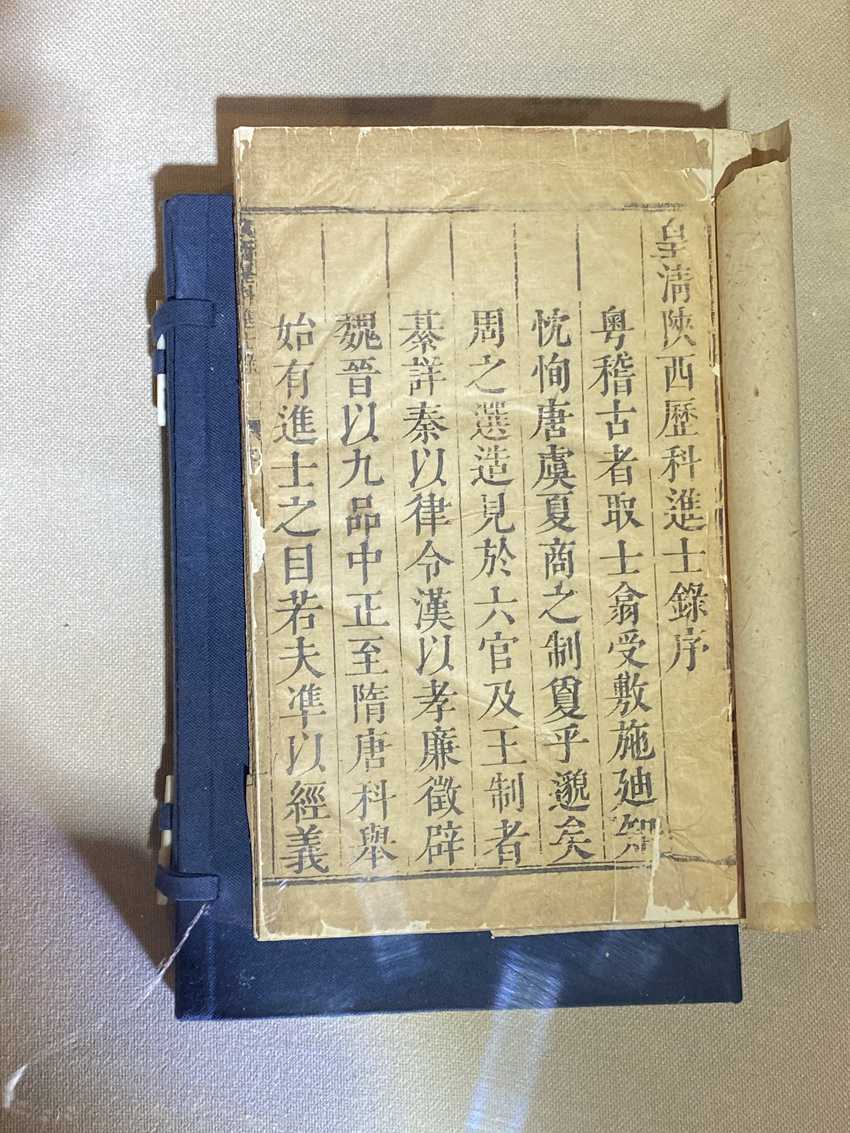 皇清陝西歷科進士錄序
粵稽古者取士翕受敷施廸知
忱恂唐虞夏商之制敻乎邈矣
周之選造見於六官及王制者
綦詳秦以律令漢以孝廉徵辟
魏晉以九品中正至隋唐科舉
始有進士之目若夫凖以經義